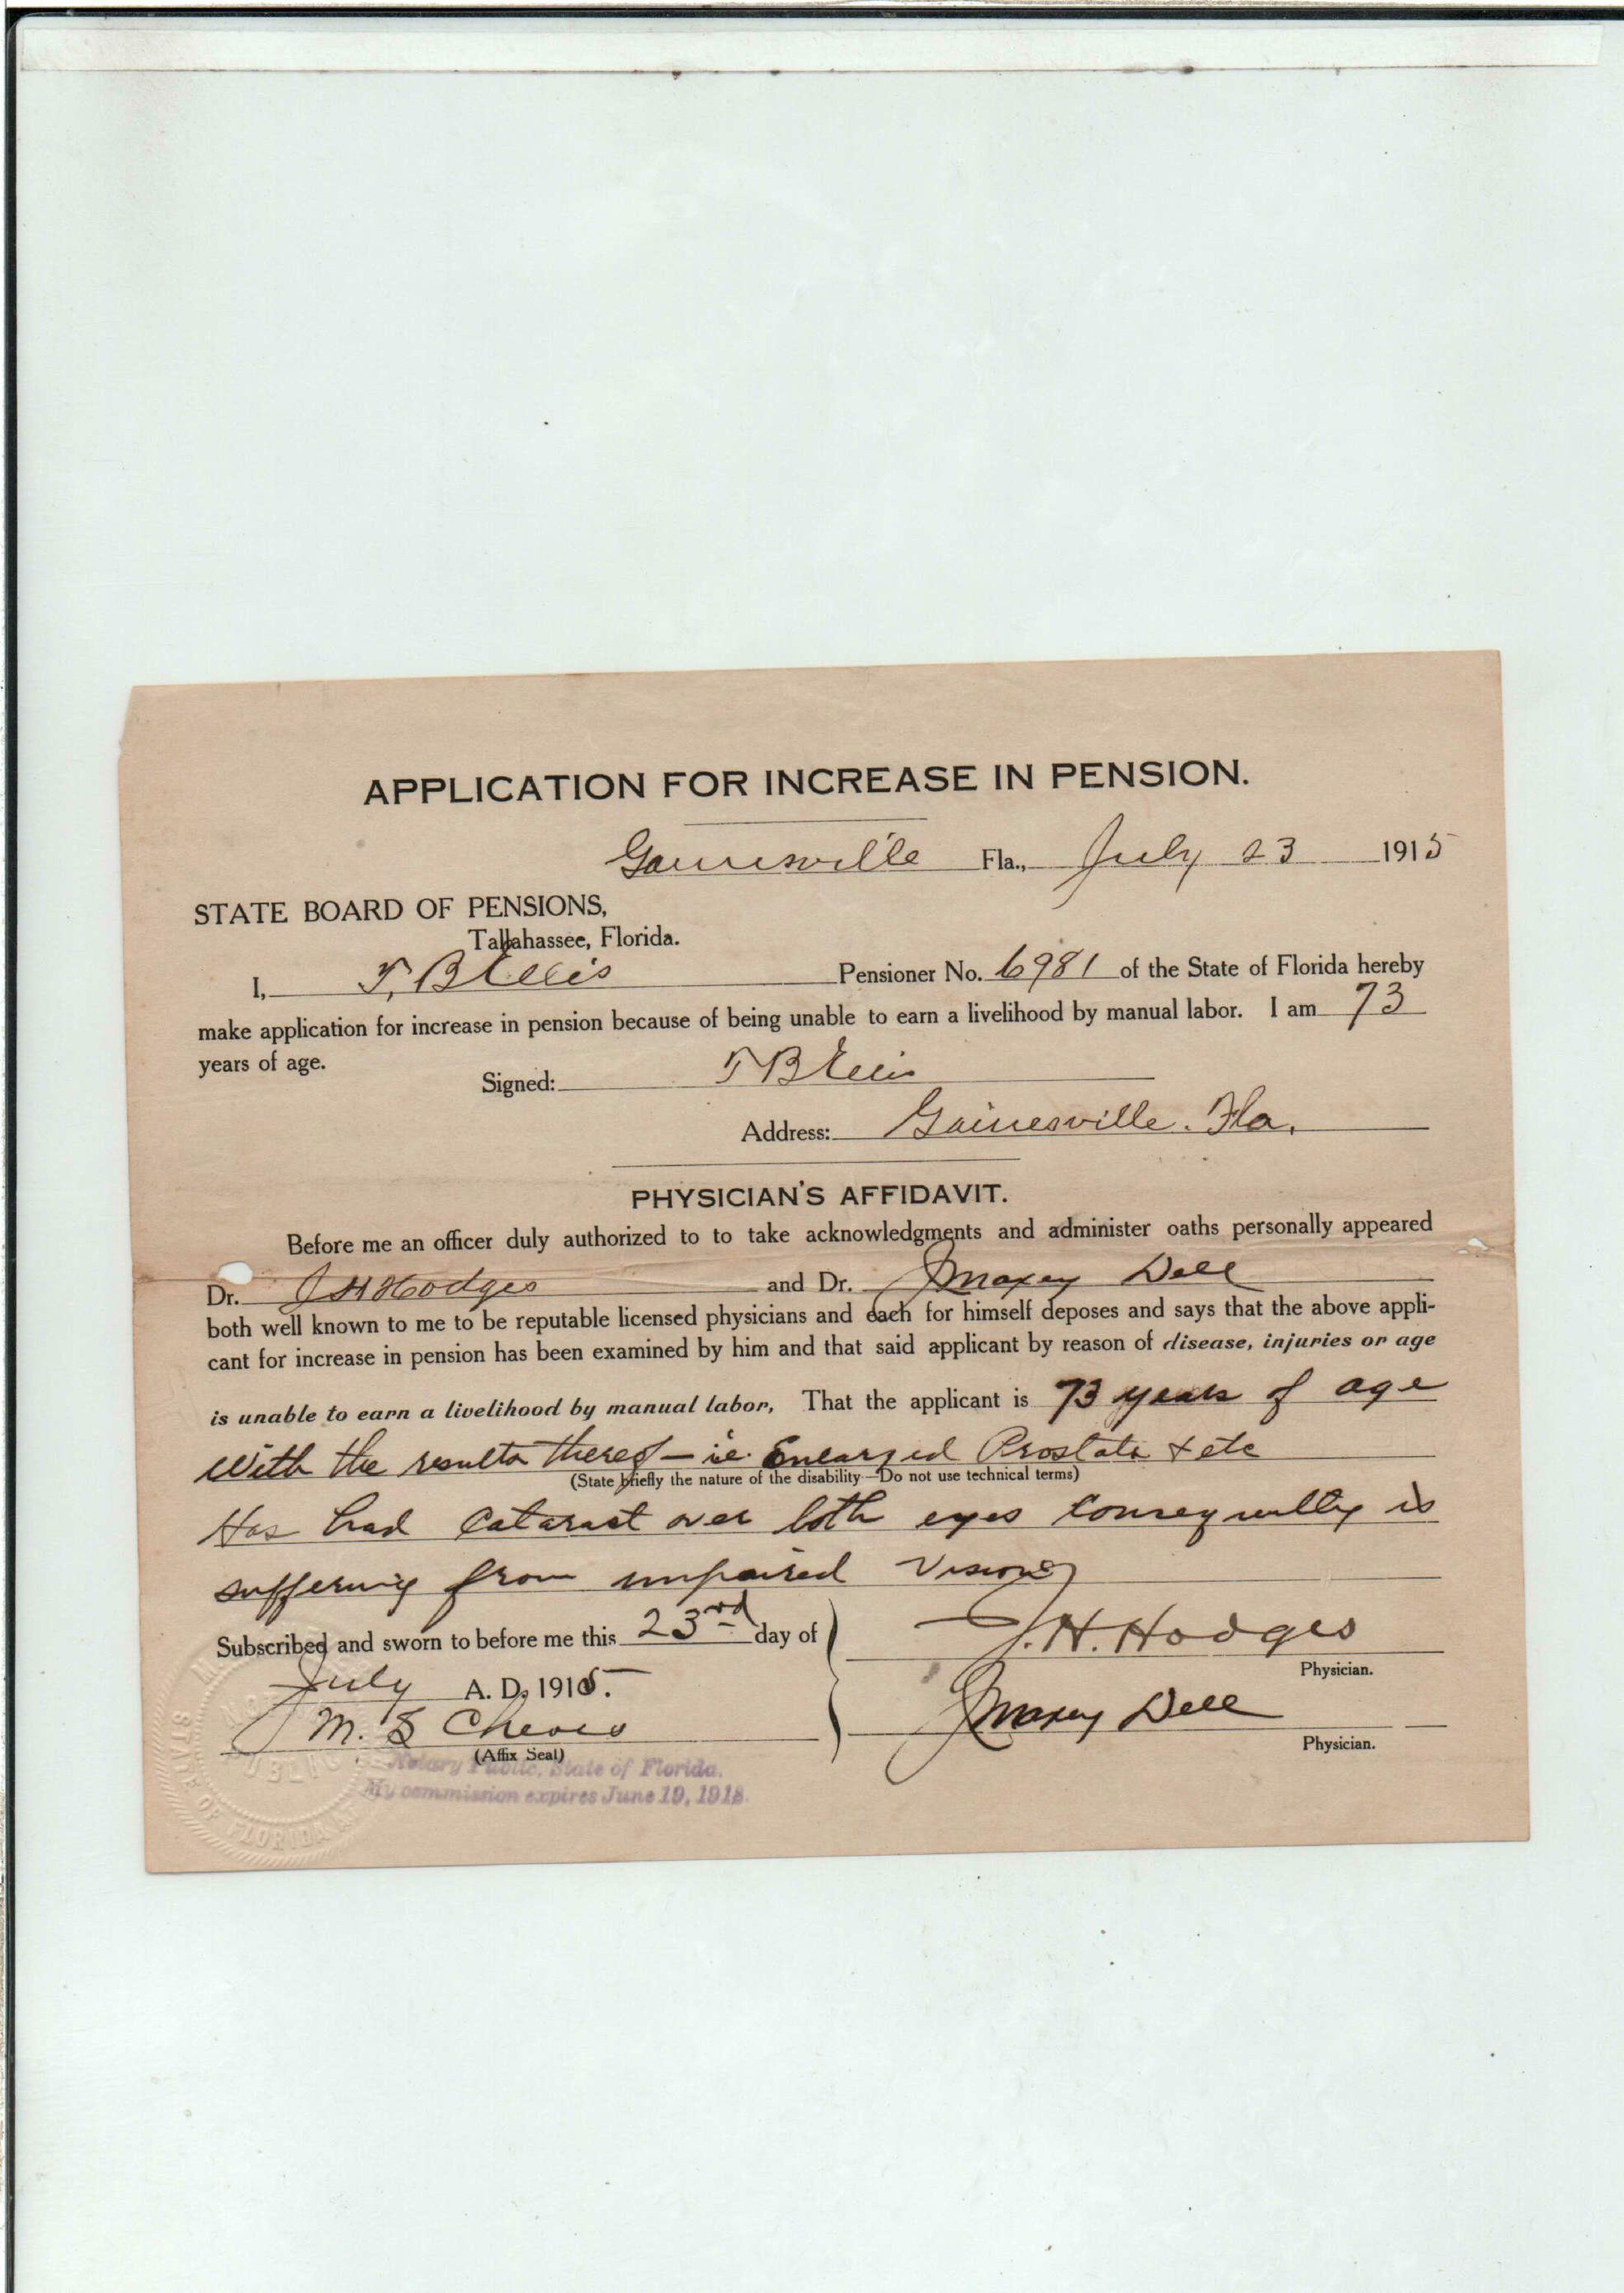 APPLICATION FOR INCREASE IN PENSION.
Gainesville Fla., July 23 1915
STATE BOARD OF PENSIONS,
Tallahassee, Florida.
I, T. B Ellis Pensioner No. 6981 of the State of Florida hereby
make application for increase in pension because of being unable to earn a livelihood by manual labor. I am 73
years of age.
Signed: T B Ellis
Address: Gainesville. Fla.
PHYSICIAN'S AFFIDAVIT.
Before me an officer duly authorized to to take acknowledgments and administer oaths personally appeared
Dr. J H Hodges and Dr. J Maxey Dell
both well known to me to be reputable licensed physicians and each for himself deposes and says that the above appli-
cant for increase in pension has been examined by him and that said applicant by reason of disease, injuries or age
is unable to earn a livelihood by manual labor, That the applicant is 73 years of age
With the results thereof – ie. Enlarged Prostate & etc
(State briefly the nature of the disability—Do not use technical terms)
Has had Cataract over both eyes Consequently is
suffering from impaired Vision
Subscribed and sworn to before me this 23rd day of
J. H. Hodges
Physician.
July A. D. 1915.
M. S Cheves
J Maxey Dell
Physician.
(Affix Seal)
Notary Public, State of Florida.
My commission expires June 19, 1918.
STATE OF FLORIDA